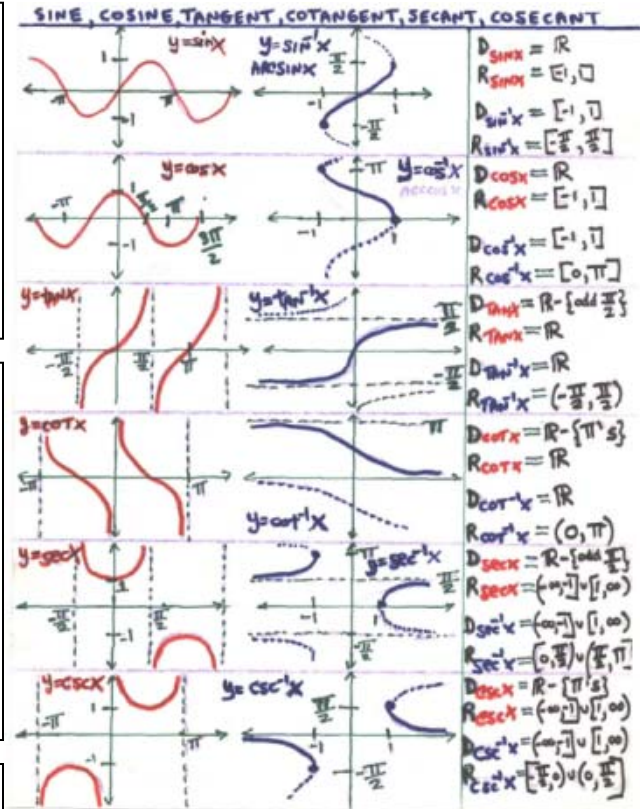 SINE, COSINE, TANGENT, COTANGENT, SECANT, COSECANT
y=sinx
1
-π
π
-1
y=SIN⁻¹x
ARCSINX
π/2
-1
1
-π/2
D sinx = ℝ
R sinx = [-1,1]
D sin⁻¹x = [-1,1]
R sin⁻¹x = [-π/2, π/2]
y=cosx
-π
1
π
3π/2
-1
y=cos⁻¹x
ARCCOSX
π
-1
1
D cosx = ℝ
R cosx = [-1,1]
D cos⁻¹x = [-1,1]
R cos⁻¹x = [0,π]
y=tanx
-π/2
π/2
π
y=tan⁻¹x
π/2
-π/2
D tanx = ℝ-{odd π/2}
R tanx = ℝ
D tan⁻¹x = ℝ
R tan⁻¹x = (-π/2, π/2)
y=cotx
-π
π
y=cot⁻¹x
π
D cotx = ℝ-{π's}
R cotx = ℝ
D cot⁻¹x = ℝ
R cot⁻¹x = (0,π)
y=secx
1
-π/2
π/2
-1
y=sec⁻¹x
π
-1
1
-π/2
D secx = ℝ-{odd π/2}
R secx = (-∞,-1]∪[1,∞)
D sec⁻¹x = (-∞,-1]∪[1,∞)
R sec⁻¹x = [0,π/2)∪(π/2,π]
y=cscx
-π
1
π
-1
y=csc⁻¹x
π/2
-1
1
-π/2
D cscx = ℝ-{π's}
R cscx = (-∞,-1]∪[1,∞)
D csc⁻¹x = (-∞,-1]∪[1,∞)
R csc⁻¹x = [-π/2,0)∪(0,π/2]